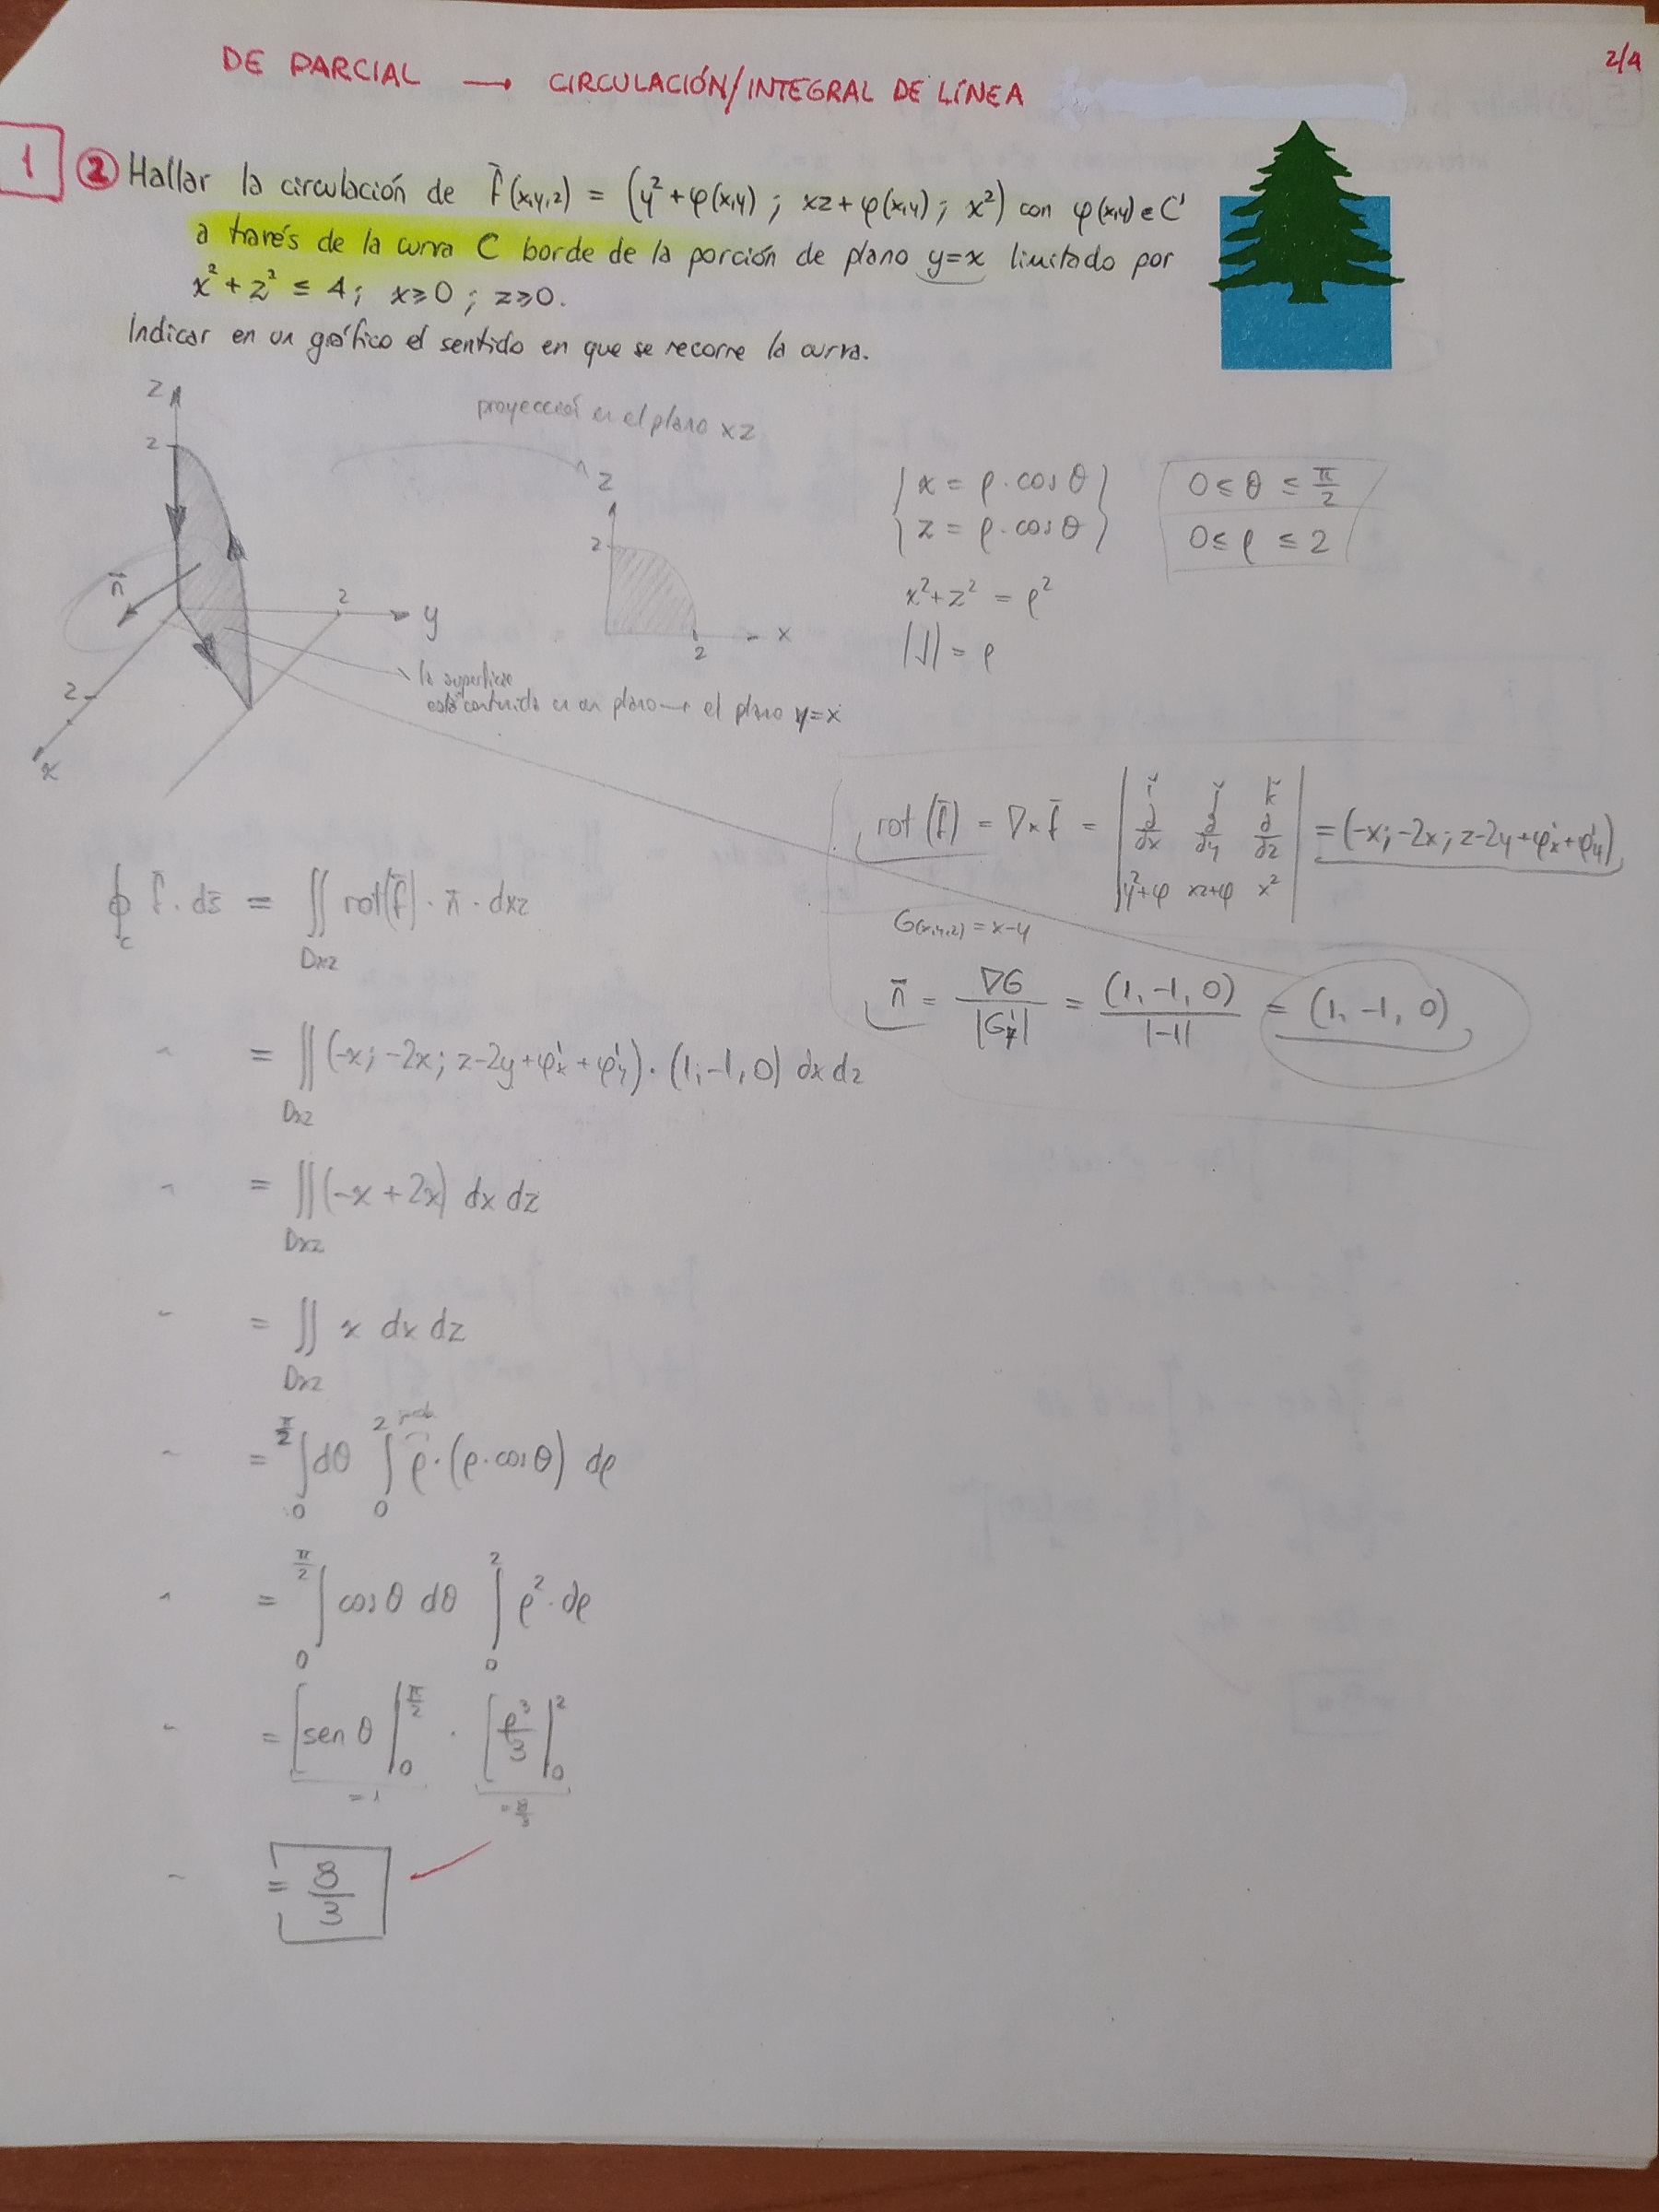 DE PARCIAL → CIRCULACIÓN/INTEGRAL DE LÍNEA
2/4
1
② Hallar la circulación de f̄(x,y,z) = (y² + φ(x,y) ; xz + φ(x,y) ; x²) con φ(x,y) ∈ C¹
a través de la curva C borde de la porción de plano y=x limitado por
x² + z² ≤ 4 ; x≥0 ; z≥0.
Indicar en un gráfico el sentido en que se recorre la curva.
z
2
n̄
2
y
2
x
proyección en el plano xz
z
2
2
x
la superficie
está contenida en un plano → el plano y=x
x = ρ . cos θ
z = ρ . cos θ
0 ≤ θ ≤ π/2
0 ≤ ρ ≤ 2
x² + z² = ρ²
|J| = ρ
rot (f̄) = ∇×f̄ = | ĭ j̆ k̆ | ∂/∂x ∂/∂y ∂/∂z | y²+φ xz+φ x² | = (-x; -2x; z-2y+φ'x+φ'y)
G(x,y,z) = x-y
n̄ = ∇G / |G'y| = (1, -1, 0) / |-1| = (1, -1, 0)
∮c f̄ . ds̄ = ∬Dxz rot(f̄) . n̄ . dxz
" = ∬Dxz (-x; -2x; z-2y+φ'x+φ'y) . (1, -1, 0) dx dz
" = ∬Dxz (-x + 2x) dx dz
" = ∬Dxz x dx dz
" = ∫₀^(π/2) dθ ∫₀² ρ . (ρ . cos θ) dρ
" = ∫₀^(π/2) cos θ dθ ∫₀² ρ² . dρ
" = [sen θ |₀^(π/2) . [ρ³/3 |₀²
= 1
= 8/3
" = 8/3